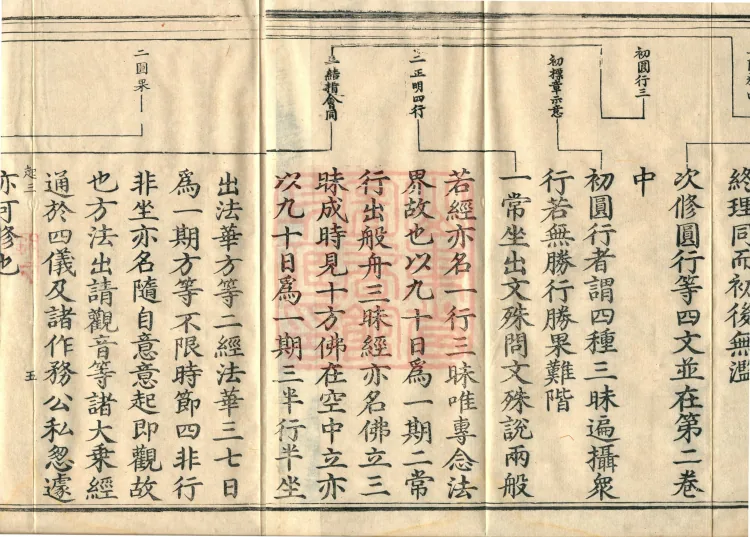 初圓行三
初標章示意
二正明四行
三結指會同
二圓果
終理同而初後無濫
次修圓行等四文並在第二卷
中
初圓行者謂四種三昧遍攝衆
行若無勝行勝果難階
一常坐出文殊問文殊說兩般
若經亦名一行三昧唯專念法
界故也以九十日爲一期二常
行出般舟三昧經亦名佛立三
昧成時見十方佛在空中立亦
以九十日爲一期三半行半坐
出法華方等二經法華三七日
爲一期方等不限時節四非行
非坐亦名隨自意意起即觀故
也方法出請觀音等諸大乘經
通於四儀及諸作務公私怱遽
起三
五
亦可修也